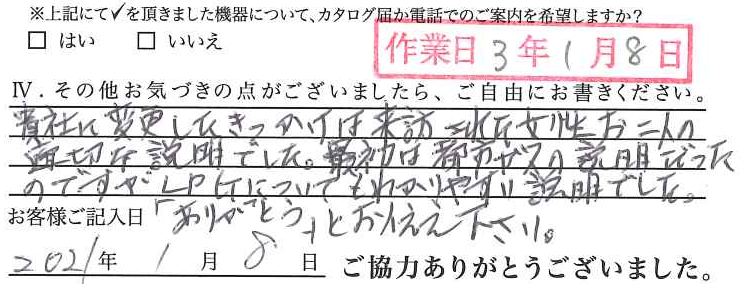 ※上記にて✓を頂きました機器について、カタログ届か電話でのご案内を希望しますか？
□ はい □ いいえ
作業日 3年 1月 8日
Ⅳ．その他お気づきの点がございましたら、ご自由にお書きください。
貴社に変更したきっかけは来訪された女性お二人の
適切な説明でした。最初は都市ガスの説明だった
のですがLPGについてもわかりやすい説明でした。
「ありがとう」とお伝え下さい。
お客様ご記入日
2021年 1月 8日 ご協力ありがとうございました。